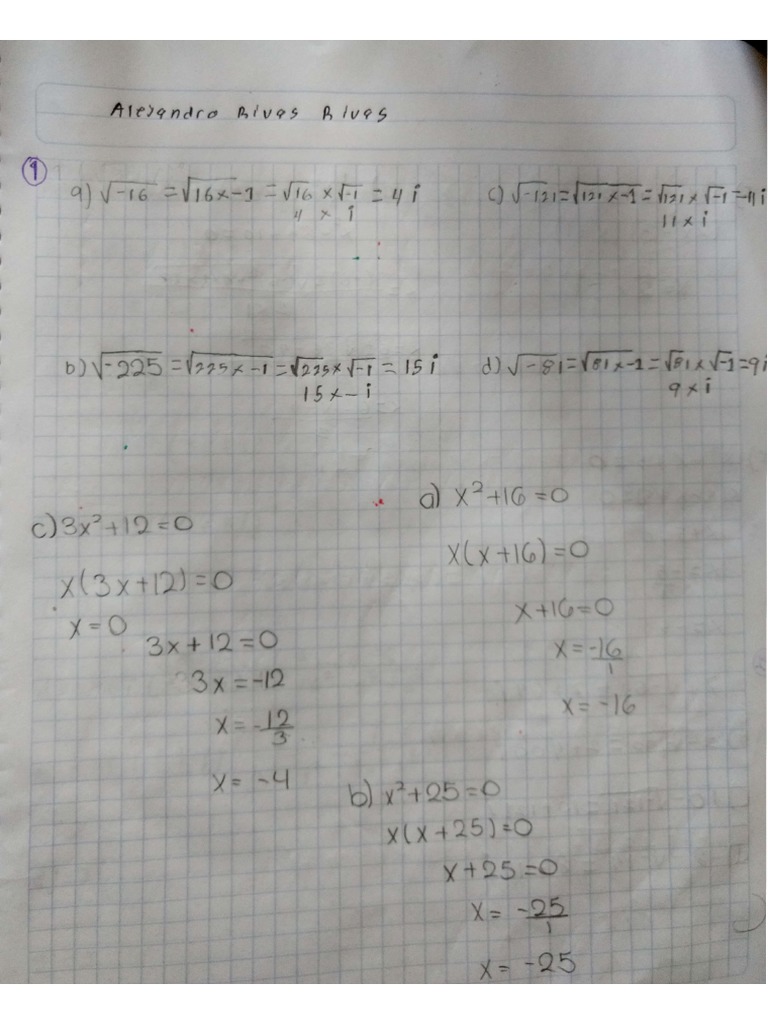 Alejandro Rivas Rivas
1
a) √-16 = √16x-1 = √16 x √-1 = 4 i
4 x i
c) √-121 = √121 x-1 = √121 x √-1 = 11 i
11 x i
b) √-225 = √225 x -1 = √225 x √-1 = 15 i
15 x - i
d) √-81 = √81 x-1 = √81 x √-1 = 9 i
9 x i
a) x²+16=0
x(x+16)=0
x+16=0
x=-16/1
x=-16
c) 3x²+12=0
x(3x+12)=0
x=0
3x+12=0
3x=-12
x=-12/3
x=-4
b) x²+25=0
x(x+25)=0
x+25=0
x=-25/1
x=-25